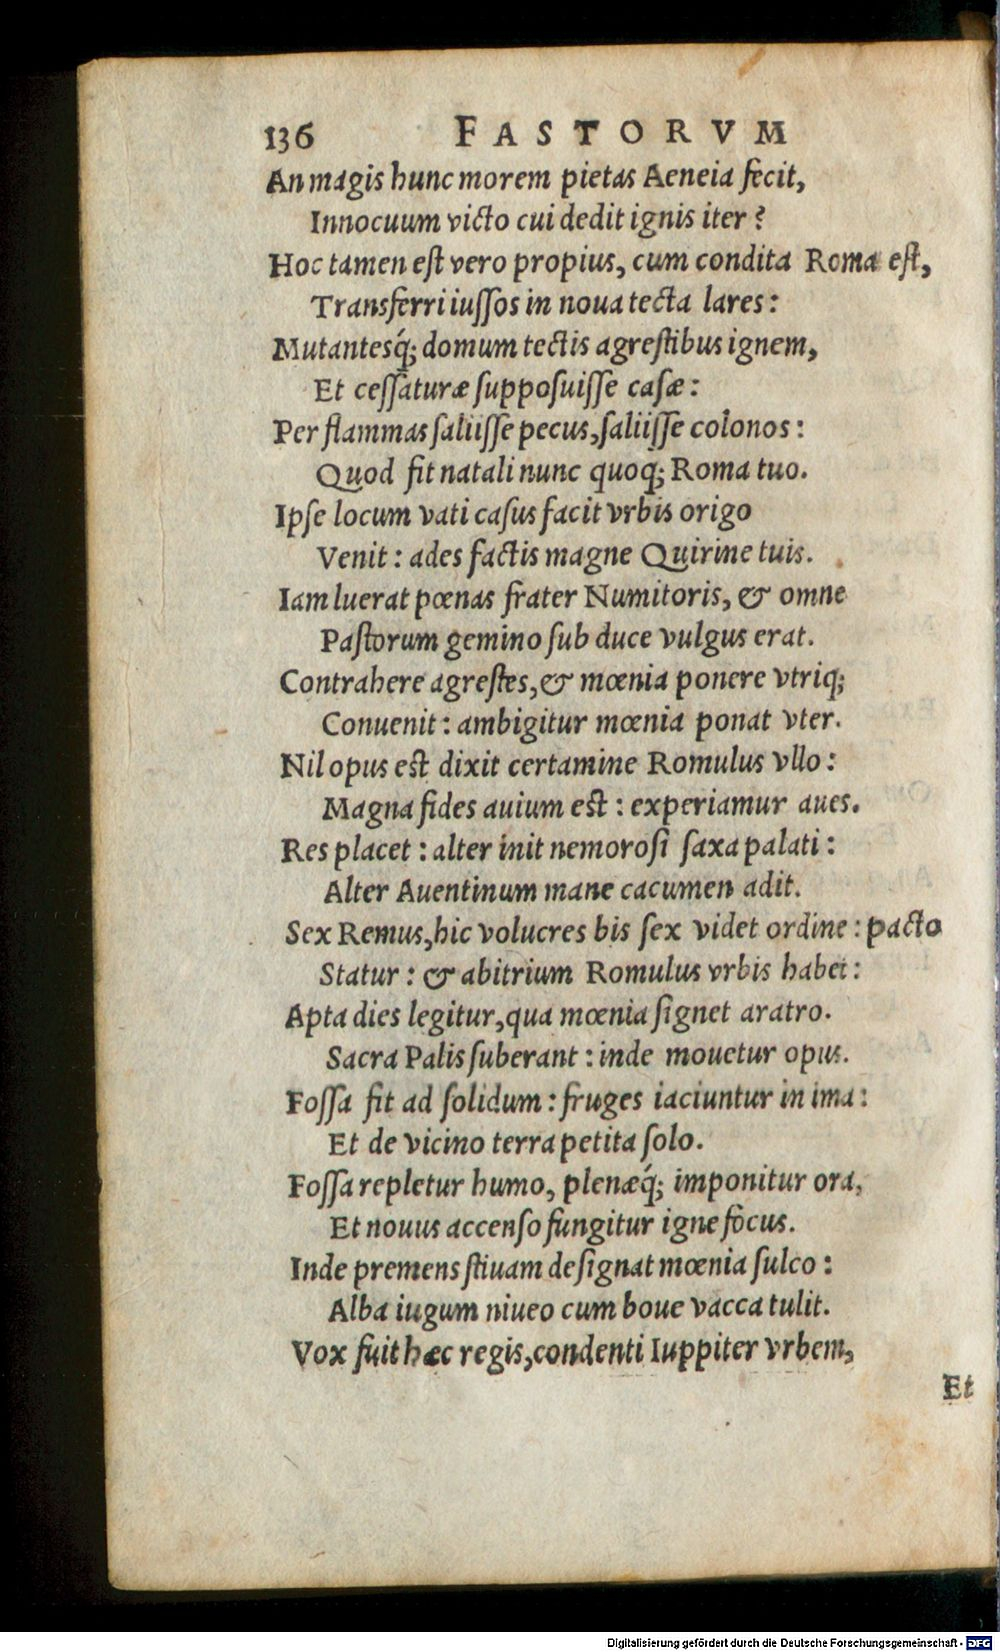 136 FASTORVM
An magis hunc morem pietas Aeneia fecit,
Innocuum victo cui dedit ignis iter ?
Hoc tamen eſt vero propius, cum condita Roma eſt,
Transferri iuſſos in noua tecta lares :
Mutantesq́; domum tectis agreſtibus ignem,
Et ceſſaturæ ſuppoſuiſſe caſæ :
Per flammas ſaliiſſe pecus, ſaliiſſe colonos :
Quod fit natali nunc quoq; Roma tuo.
Ipſe locum vati caſus facit vrbis origo
Venit : ades factis magne Quirine tuis.
Iam luerat pœnas frater Numitoris, & omne
Paſtorum gemino ſub duce vulgus erat.
Contrahere agreſtes, & mœnia ponere vtriq;
Conuenit : ambigitur mœnia ponat vter.
Nil opus est dixit certamine Romulus vllo :
Magna fides auium est : experiamur aues.
Res placet : alter init nemoroſi ſaxa palati :
Alter Auentinum mane cacumen adit.
Sex Remus, hic volucres bis ſex videt ordine : pacto
Statur : & abitrium Romulus vrbis habet :
Apta dies legitur, qua mœnia ſignet aratro.
Sacra Palis ſuberant : inde mouetur opus.
Foſſa fit ad ſolidum : fruges iaciuntur in ima :
Et de vicino terra petita ſolo.
Foſſa repletur humo, plenæq́; imponitur ora,
Et nouus accenſo fungitur igne focus.
Inde premens ſtiuam deſignat mœnia ſulco :
Alba iugum niueo cum boue vacca tulit.
Vox fuit hæc regis, condenti Iuppiter vrbem,
Et
Digitalisierung gefördert durch die Deutsche Forschungsgemeinschaft - DFG